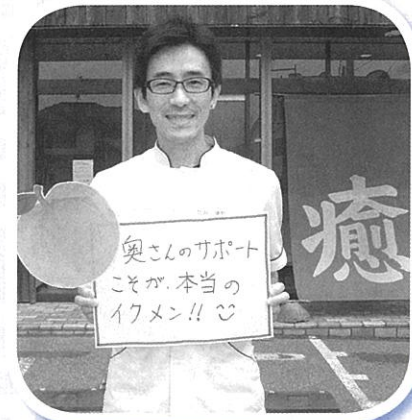 奥さんのサポート
こそが、本当の
イクメン!!
癒